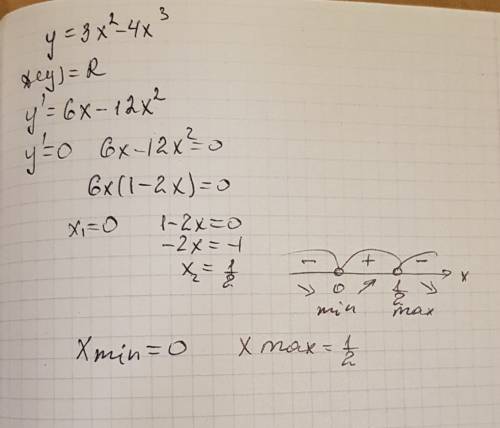 y = 3x² - 4x³
x(y) = R
y' = 6x - 12x²
y' = 0 6x - 12x² = 0
6x(1 - 2x) = 0
x₁ = 0 1 - 2x = 0
-2x = -1
x₂ = 1/2
- + -
0 1/2 x
min max
X min = 0 X max = 1/2